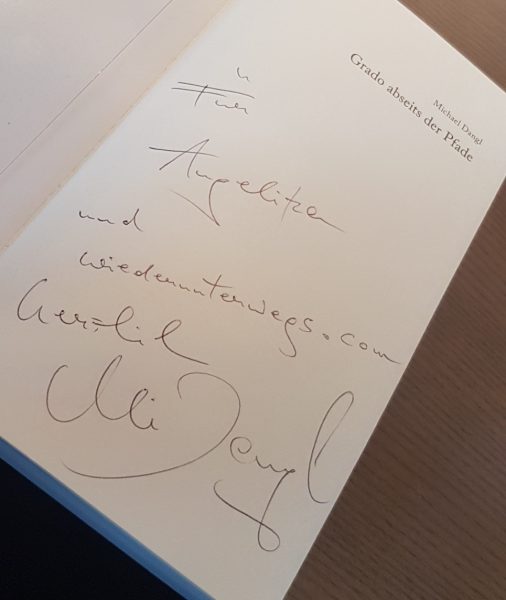 Michael Dangl
Grado abseits der Pfade
Für
Angelika
und
wiederunterwegs.com
Herzlich
Mi Dangl